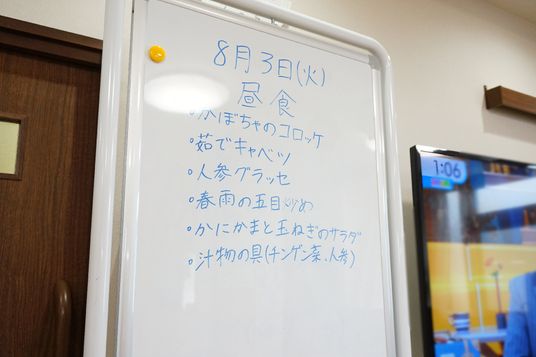 8月3日(火)
昼食
・かぼちゃのコロッケ
・茹でキャベツ
・人参グラッセ
・春雨の五目炒め
・かにかまと玉ねぎのサラダ
・汁物の具(チンゲン菜、人参)
1:06